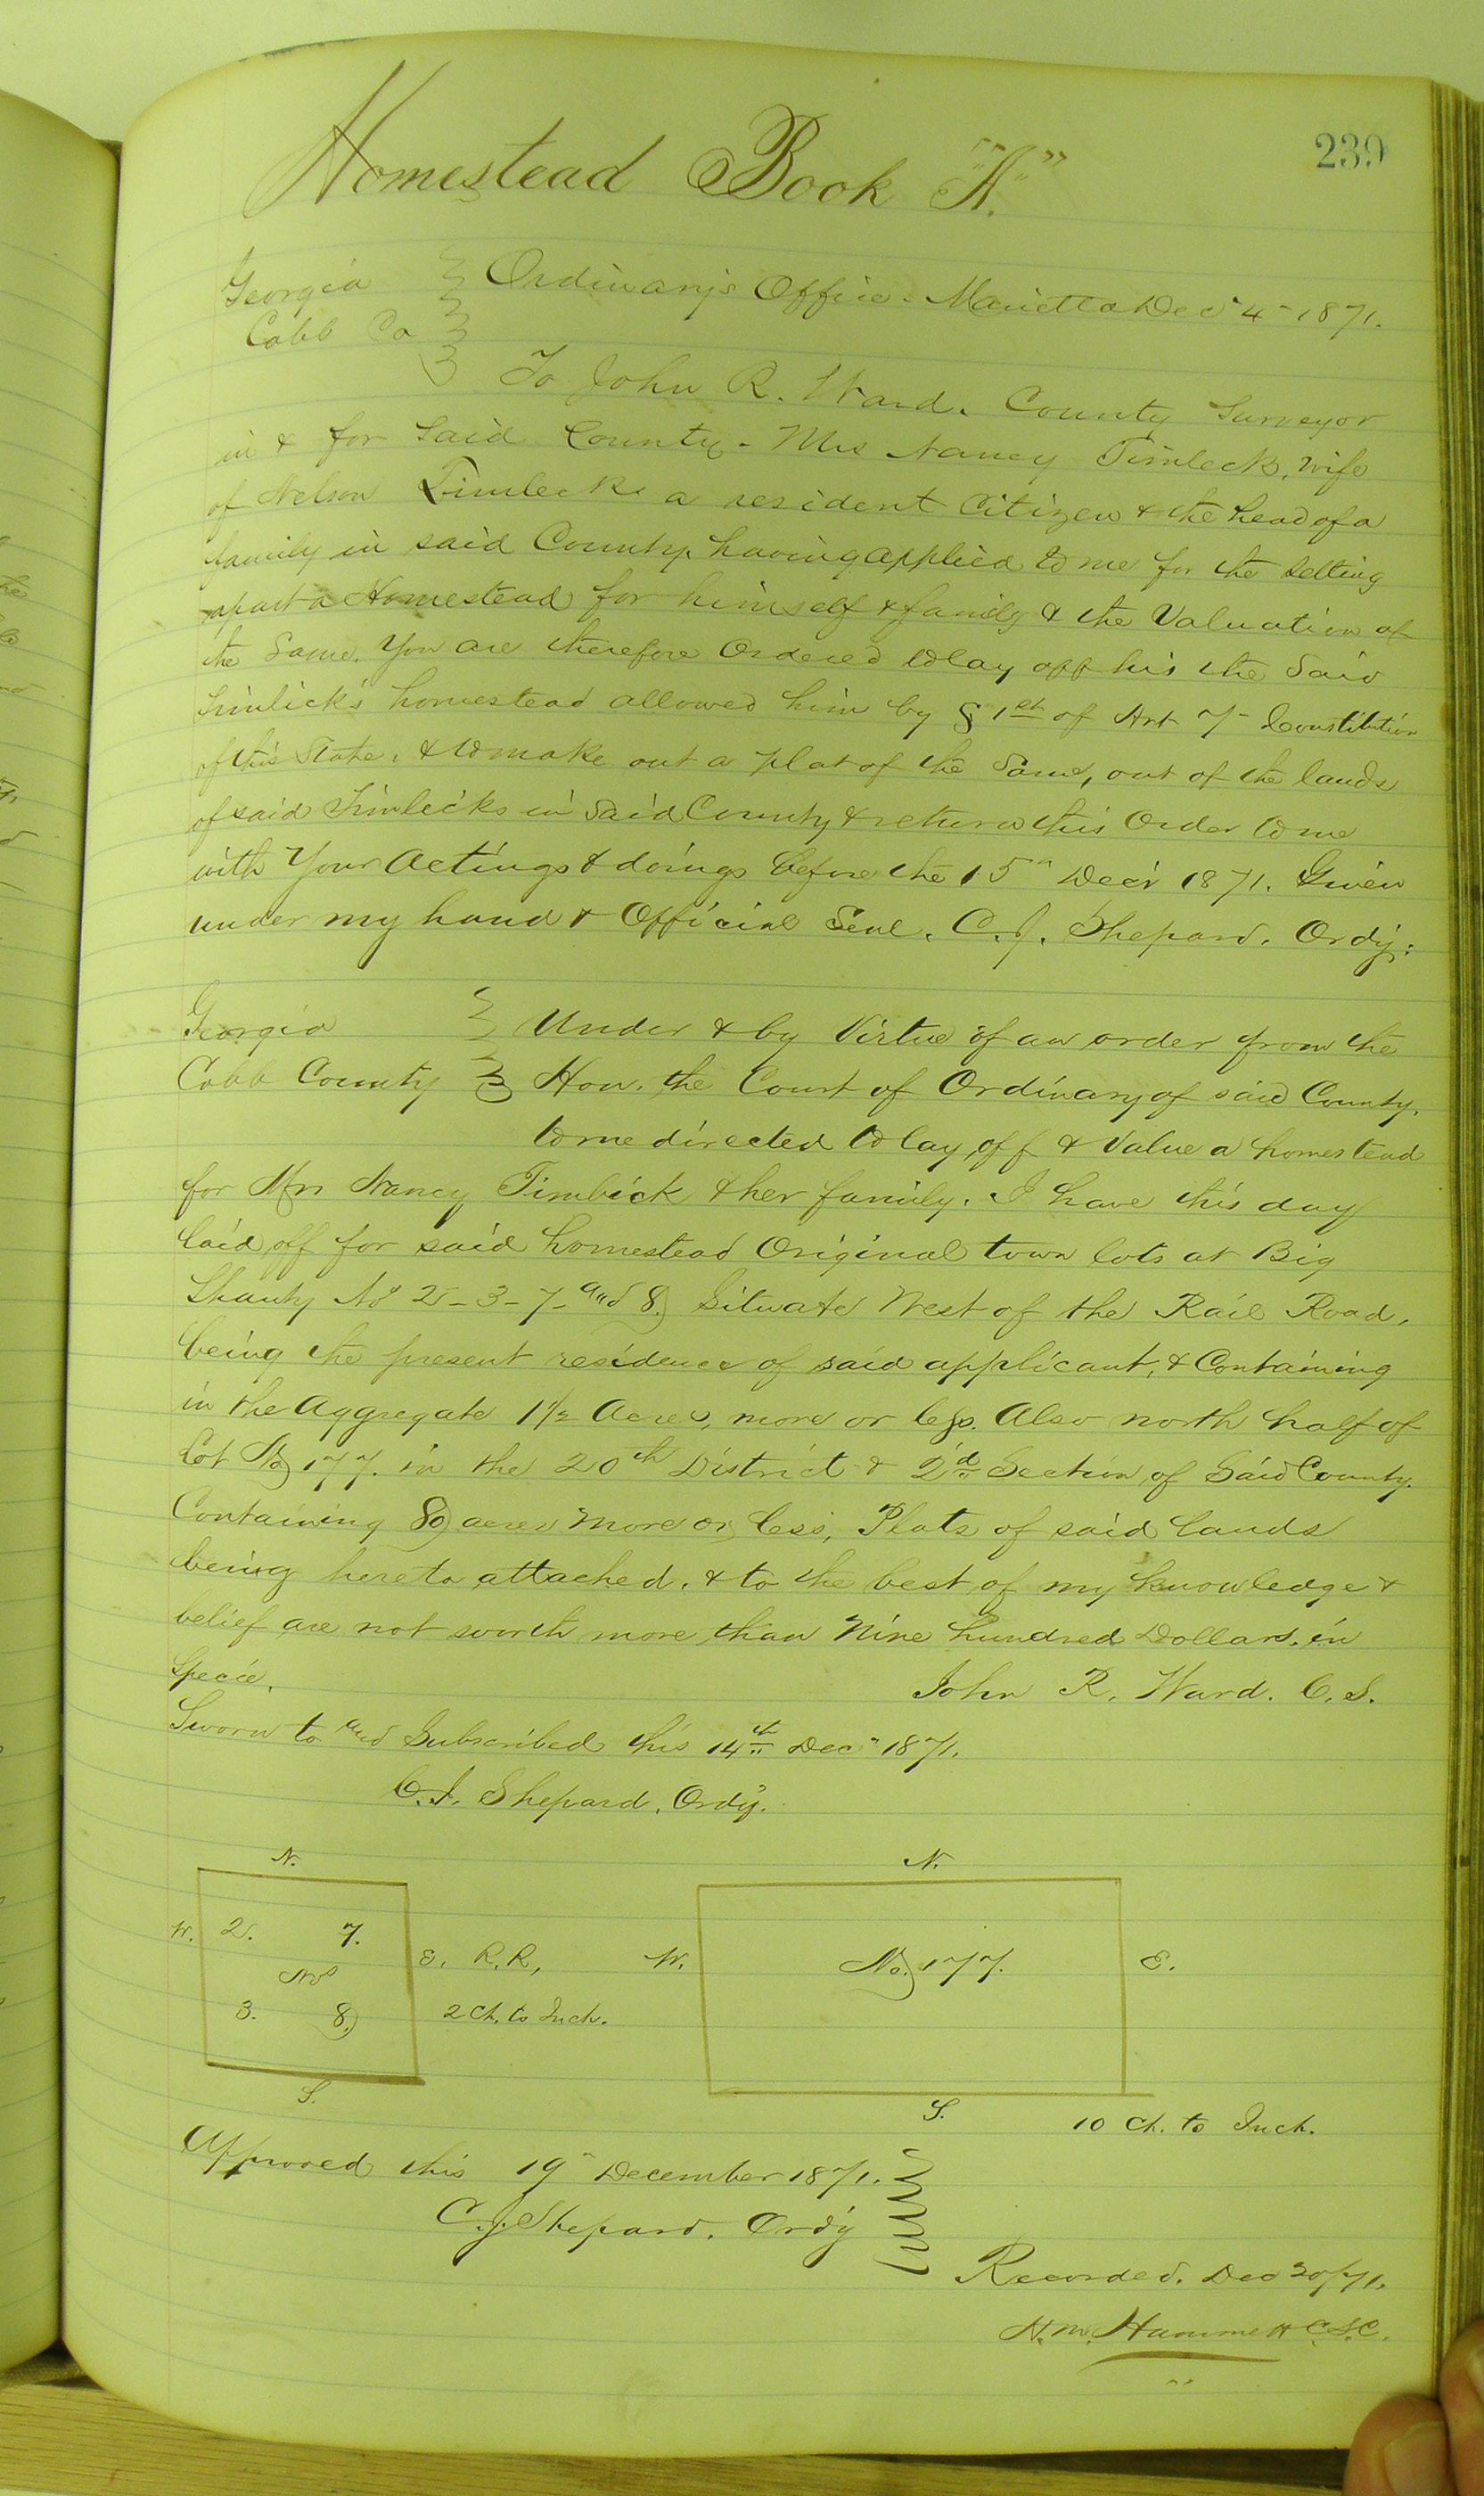 239
Homestead Book "A."
Georgia Ordinary's Office. Marietta Decr 4" 1871.
Cobb Co
To John R. Ward. County Surveyor
in & for Said County - Mrs Nancy Timleck, wife
of Nelson Timleck a resident Citizen & the head of a
family in said County, having applied to me for the setting
apart a Homestead for himself & family & the Valuation of
the Same. You are therefore Ordered to lay off his the Said
Timlick's homestead allowed him by § 1st of Art 7 - Constitution
of this State, & to make out a plat of the Same, out of the lands
of said Timleicks in Said County & return this Order to me
with Your Actings & doings before the 15" Decr 1871. Given
under my hand & Official Seal. C.J. Shepard. Ordy.
Georgia Under & by Virtue of an order from the
Cobb County Hon. the Court of Ordinary of said County.
to me directed to lay off & Value a homestead
for Mrs Nancy Timbick & her family. I have this day
laid off for said homestead Original town lots at Big
Shanty Nos 2 - 3 - 7 - and 8. Situate West of the Rail Road,
being the present residence of said applicant, & Containing
in the Aggregate 1 1/2 Acres, more or less. Also north half of
Lot No 177. in the 20th District & 2d Section of Said County.
Containing 80 acres more or less, Plats of said lands
being hereto attached. & to the best of my knowledge &
belief are not worth more than Nine hundred Dollars. in
Specie.
John R. Ward. C.S.
Sworn to and Subscribed this 14th Dec" 1871.
C.J. Shepard. Ordy.
N. N.
W. 2. 7. E. R.R. W. No. 177. E.
Nos
3. 8. 2 Ch. to Inch.
S. S. 10 Ch. to Inch.
Approved this 19" December 1871.
C.J. Shepard. Ordy
Recorded. Dec 20/71.
N.M. Hammett C.S.C.